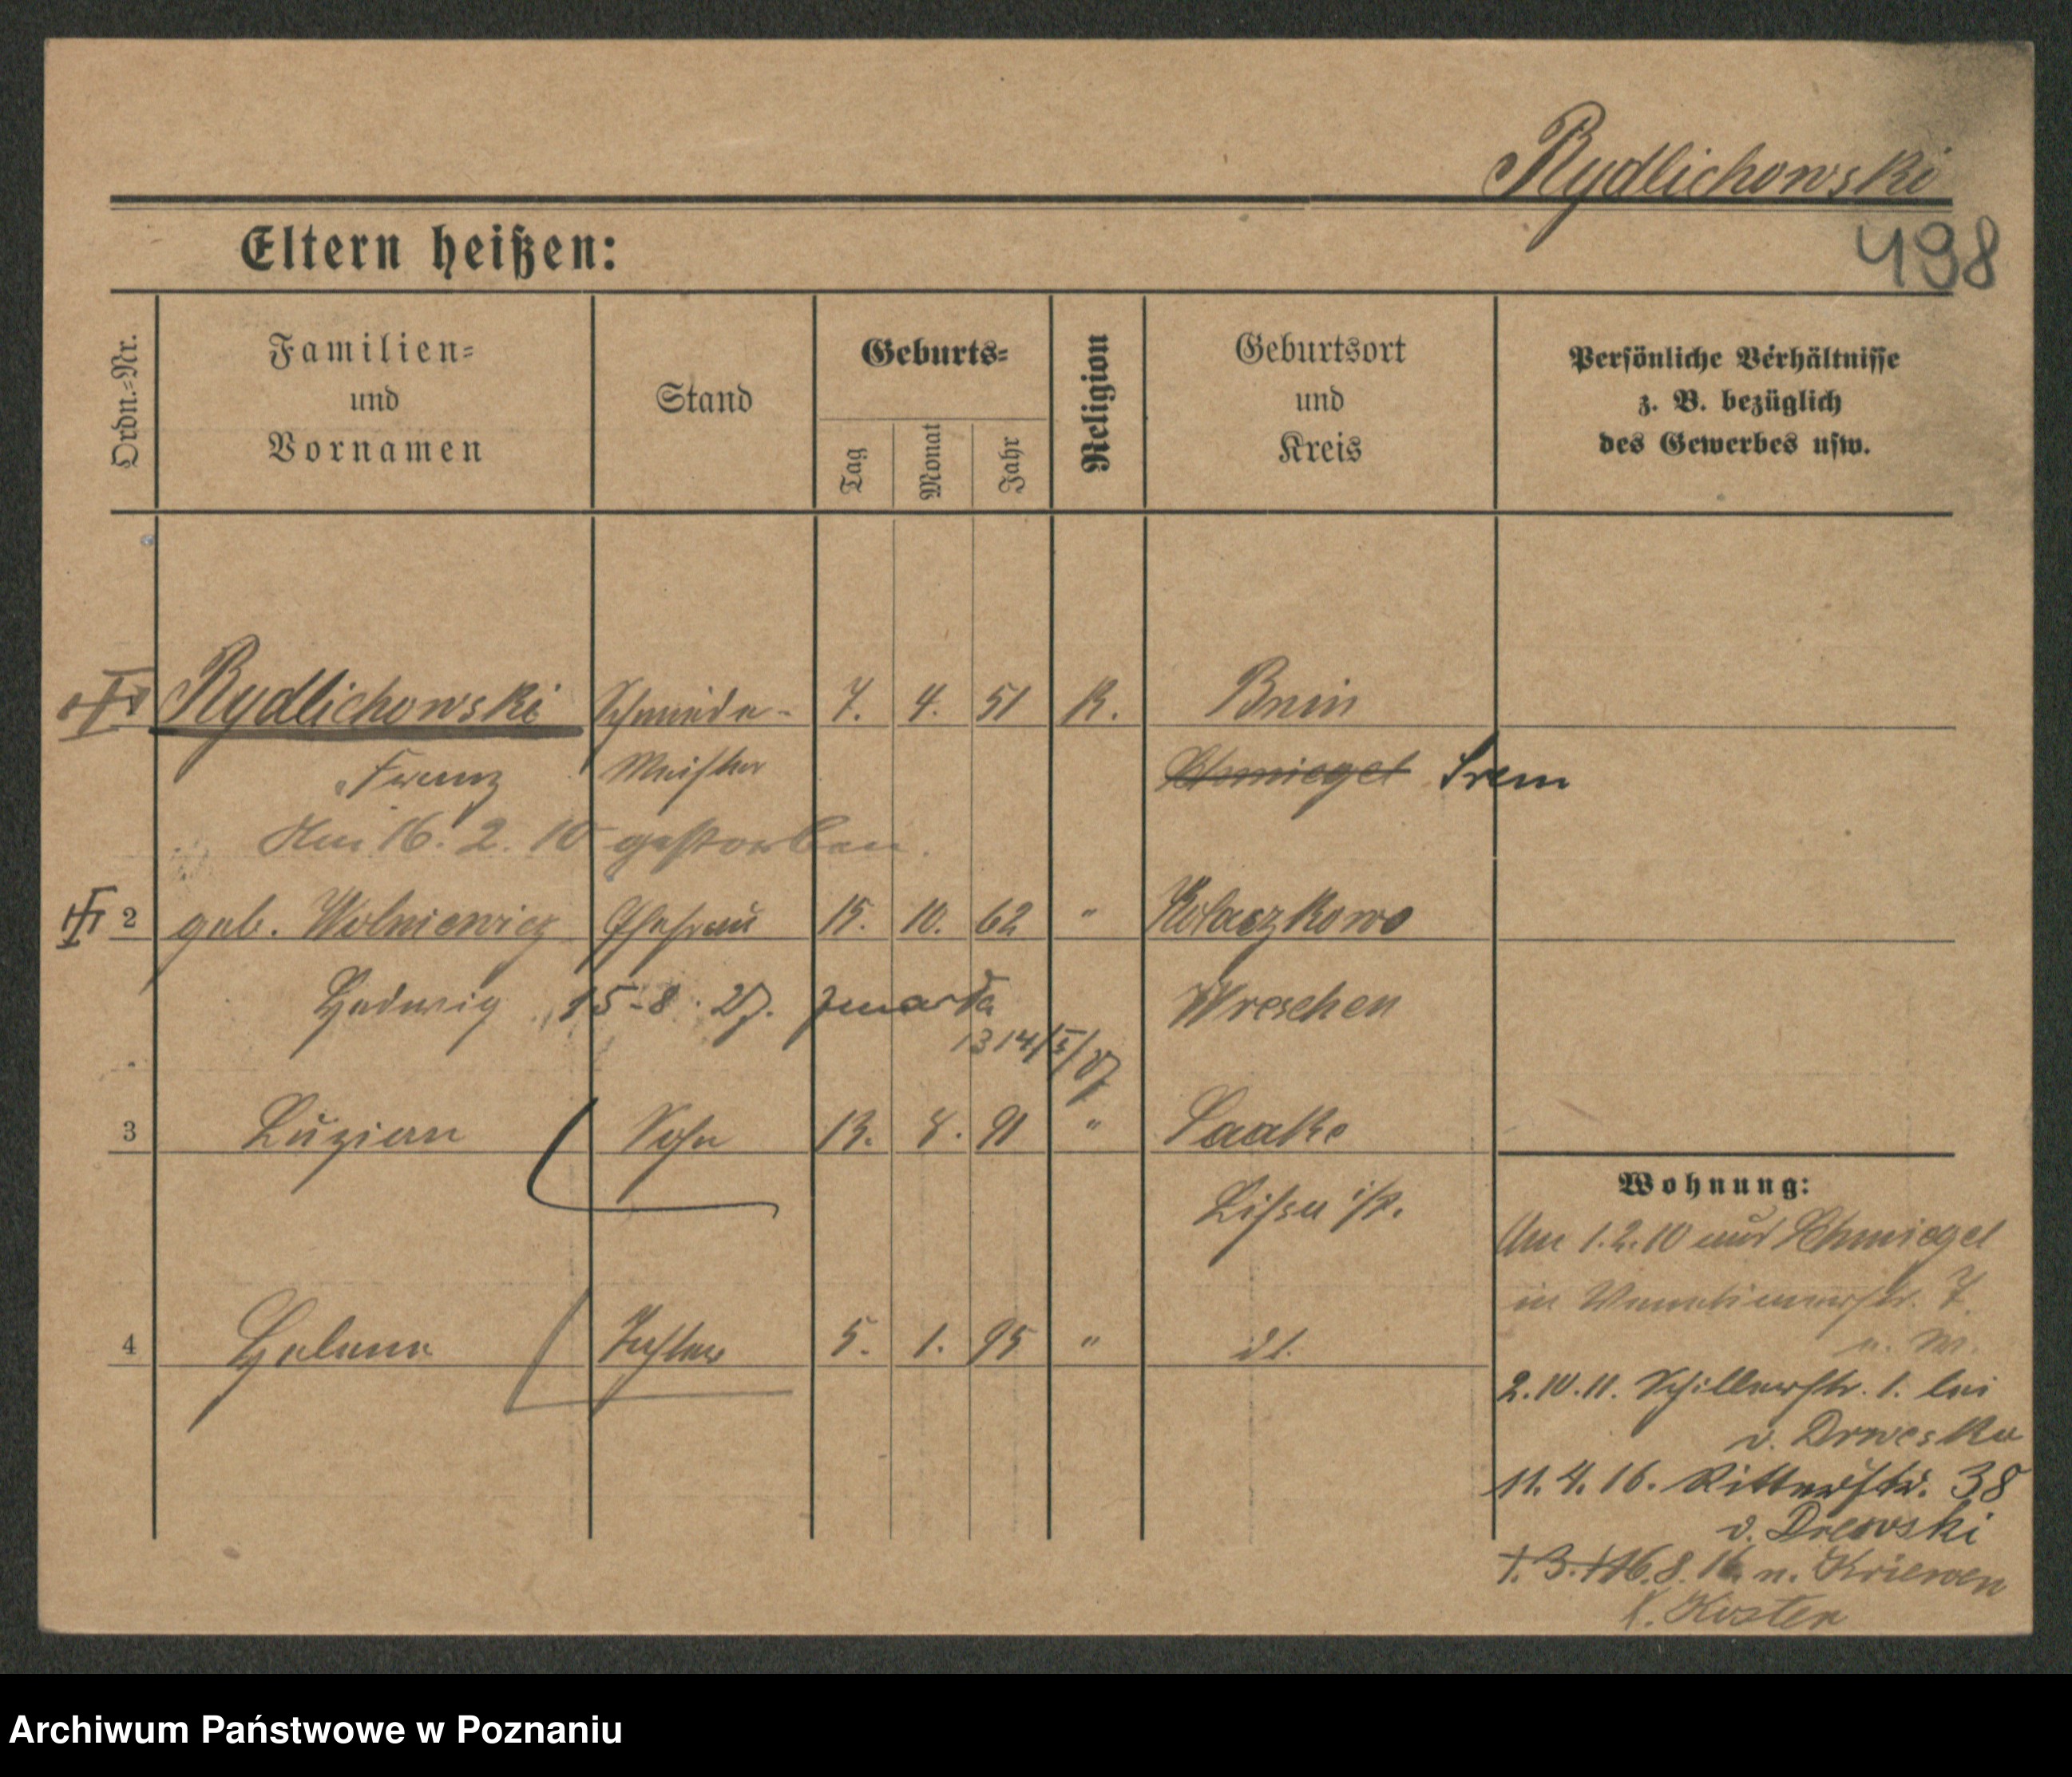 Rydlichowski
498
Eltern heißen:
Ordn.-Nr.
Familien-
und
Vornamen
Stand
Geburts-
Tag
Monat
Jahr
Religion
Geburtsort
und
Kreis
Persönliche Verhältnisse
z. B. bezüglich
des Gewerbes usw.
Rydlichowski Schmiede- 7. 4. 51 K. Bnin
Franz Meister Schmiegel Srem
Am 16. 2. 10 gestorben.
2 geb. Wolniewicz Ehefrau 15. 10. 62 " Kolaczkowo
Hedwig 15-8. 27. zmarła Wreschen
1314/II/27
3 Luzian Sohn 13. 8. 91 " Laake
Lissa i/P.
4 Helena Tochter 5. 1. 95 " dt.
Wohnung:
Am 1.2.10 aus Schmiegel
in 7.
u. M.
2.10.11. Schillerstr. 1. bei
v. Drweska
11.4.16. Ritterstr. 38
v. Drewski
8. 16. n. Kriewen
K. Kosten
Archiwum Państwowe w Poznaniu